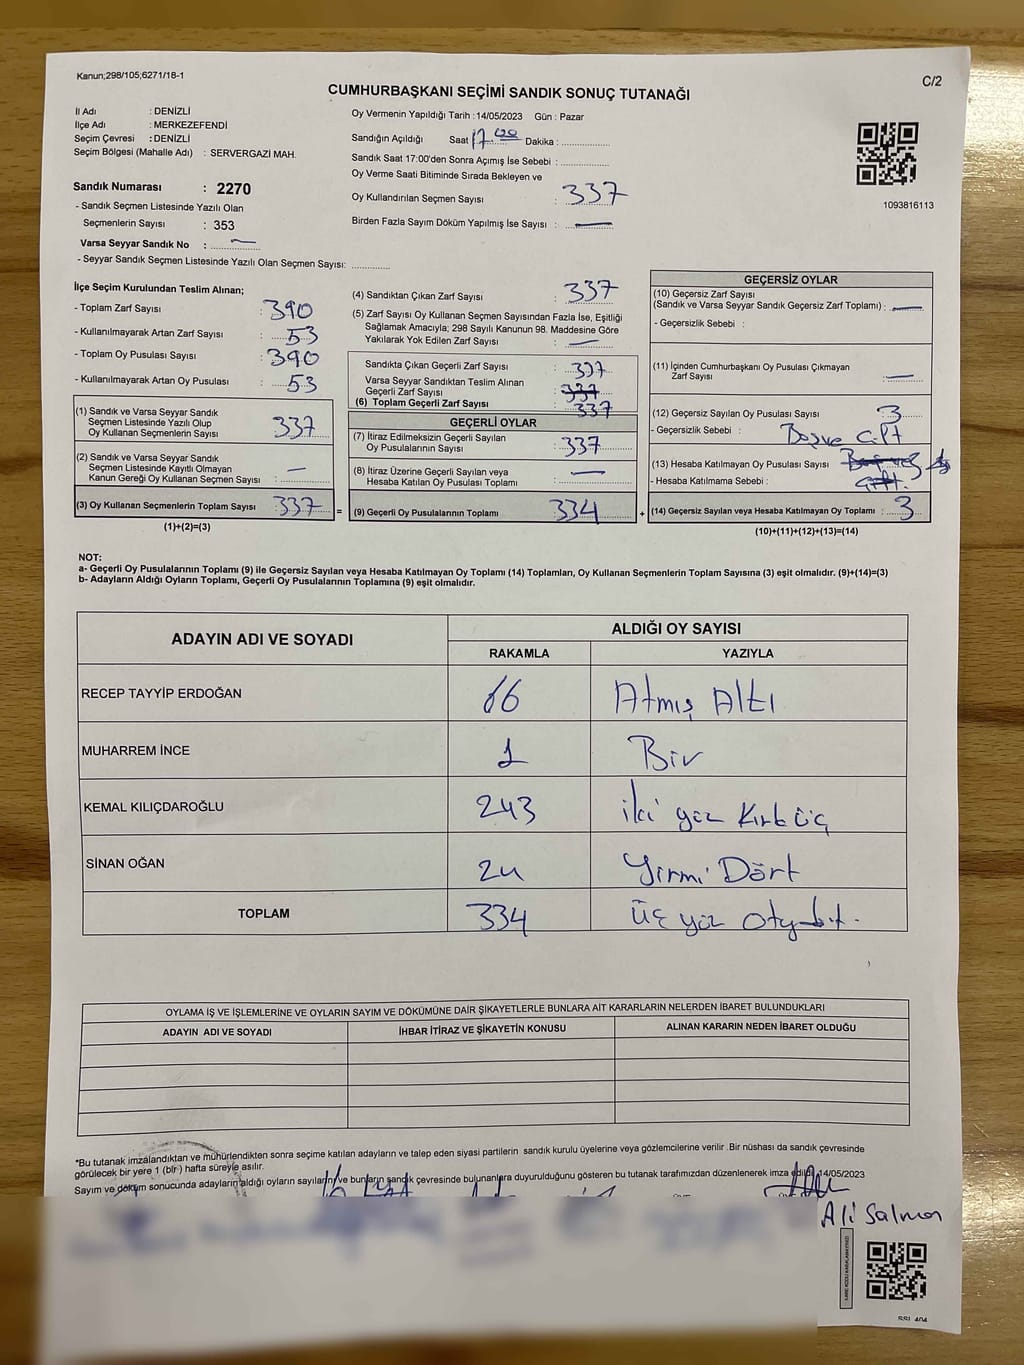 Kanun;298/105;6271/18-1
C/2
CUMHURBAŞKANI SEÇİMİ SANDIK SONUÇ TUTANAĞI
İl Adı : DENİZLİ
İlçe Adı : MERKEZEFENDİ
Seçim Çevresi : DENİZLİ
Seçim Bölgesi (Mahalle Adı) : SERVERGAZİ MAH.
Sandık Numarası : 2270
- Sandık Seçmen Listesinde Yazılı Olan
Seçmenlerin Sayısı : 353
Varsa Seyyar Sandık No : —
- Seyyar Sandık Seçmen Listesinde Yazılı Olan Seçmen Sayısı: ..............
Oy Vermenin Yapıldığı Tarih : 14/05/2023 Gün : Pazar
Sandığın Açıldığı Saat 17.00 Dakika : ..............
Sandık Saat 17:00'den Sonra Açımış İse Sebebi : ..............
Oy Verme Saati Bitiminde Sırada Bekleyen ve
Oy Kullandırılan Seçmen Sayısı : 337
Birden Fazla Sayım Döküm Yapılmış İse Sayısı : —
1093816113
İlçe Seçim Kurulundan Teslim Alınan;
- Toplam Zarf Sayısı : 390
- Kullanılmayarak Artan Zarf Sayısı : 53
- Toplam Oy Pusulası Sayısı : 390
- Kullanılmayarak Artan Oy Pusulası : 53
(1) Sandık ve Varsa Seyyar Sandık
Seçmen Listesinde Yazılı Olup
Oy Kullanan Seçmenlerin Sayısı : 337
(2) Sandık ve Varsa Seyyar Sandık
Seçmen Listesinde Kayıtlı Olmayan
Kanun Gereği Oy Kullanan Seçmen Sayısı : —
(3) Oy Kullanan Seçmenlerin Toplam Sayısı : 337 =
(1)+(2)=(3)
(4) Sandıktan Çıkan Zarf Sayısı : 337
(5) Zarf Sayısı Oy Kullanan Seçmen Sayısından Fazla İse, Eşitliği
Sağlamak Amacıyla; 298 Sayılı Kanunun 98. Maddesine Göre
Yakılarak Yok Edilen Zarf Sayısı : —
Sandıkta Çıkan Geçerli Zarf Sayısı : 337
Varsa Seyyar Sandıktan Teslim Alınan
Geçerli Zarf Sayısı : 337
(6) Toplam Geçerli Zarf Sayısı : 337
GEÇERLİ OYLAR
(7) İtiraz Edilmeksizin Geçerli Sayılan
Oy Pusulasının Sayısı : 337
(8) İtiraz Üzerine Geçerli Sayılan veya
Hesaba Katılan Oy Pusulası Toplamı : —
(9) Geçerli Oy Pusulalarının Toplamı 334 +
GEÇERSİZ OYLAR
(10) Geçersiz Zarf Sayısı
(Sandık ve Varsa Seyyar Sandık Geçersiz Zarf Toplamı) : —
- Geçersizlik Sebebi :
(11) İçinden Cumhurbaşkanı Oy Pusulası Çıkmayan
Zarf Sayısı : —
(12) Geçersiz Sayılan Oy Pusulası Sayısı : 3
- Geçersizlik Sebebi : Boş ve Çift
(13) Hesaba Katılmayan Oy Pusulası Sayısı
- Hesaba Katılmama Sebebi : Çift.
(14) Geçersiz Sayılan veya Hesaba Katılmayan Oy Toplamı : 3
(10)+(11)+(12)+(13)=(14)
NOT:
a- Geçerli Oy Pusulalarının Toplamı (9) ile Geçersiz Sayılan veya Hesaba Katılmayan Oy Toplamı (14) Toplamları, Oy Kullanan Seçmenlerin Toplam Sayısına (3) eşit olmalıdır. (9)+(14)=(3)
b- Adayların Aldığı Oyların Toplamı, Geçerli Oy Pusulalarının Toplamına (9) eşit olmalıdır.
ADAYIN ADI VE SOYADI
ALDIĞI OY SAYISI
RAKAMLA YAZIYLA
RECEP TAYYİP ERDOĞAN 66 Atmış Altı
MUHARREM İNCE 1 Bir
KEMAL KILIÇDAROĞLU 243 iki yüz Kırk üç
SİNAN OĞAN 24 Yirmi Dört
TOPLAM 334 Üç yüz
OYLAMA İŞ VE İŞLEMLERİNE VE OYLARIN SAYIM VE DÖKÜMÜNE DAİR ŞİKAYETLERLE BUNLARA AİT KARARLARIN NELERDEN İBARET BULUNDUKLARI
ADAYIN ADI VE SOYADI İHBAR İTİRAZ VE ŞİKAYETİN KONUSU ALINAN KARARIN NEDEN İBARET OLDUĞU
*Bu tutanak imzalandıktan ve mühürlendikten sonra seçime katılan adayların ve talep eden siyasi partilerin sandık kurulu üyelerine veya gözlemcilerine verilir. Bir nüshası da sandık çevresinde
görülecek bir yere 1 (bir) hafta süreyle asılır.
Sayım ve döküm sonucunda adayların aldığı oyların sayılarını ve bunların sandık çevresinde bulunanlara duyurulduğunu gösteren bu tutanak tarafımızdan düzenlenerek imza edildi. 14/05/2023
Ali Salman